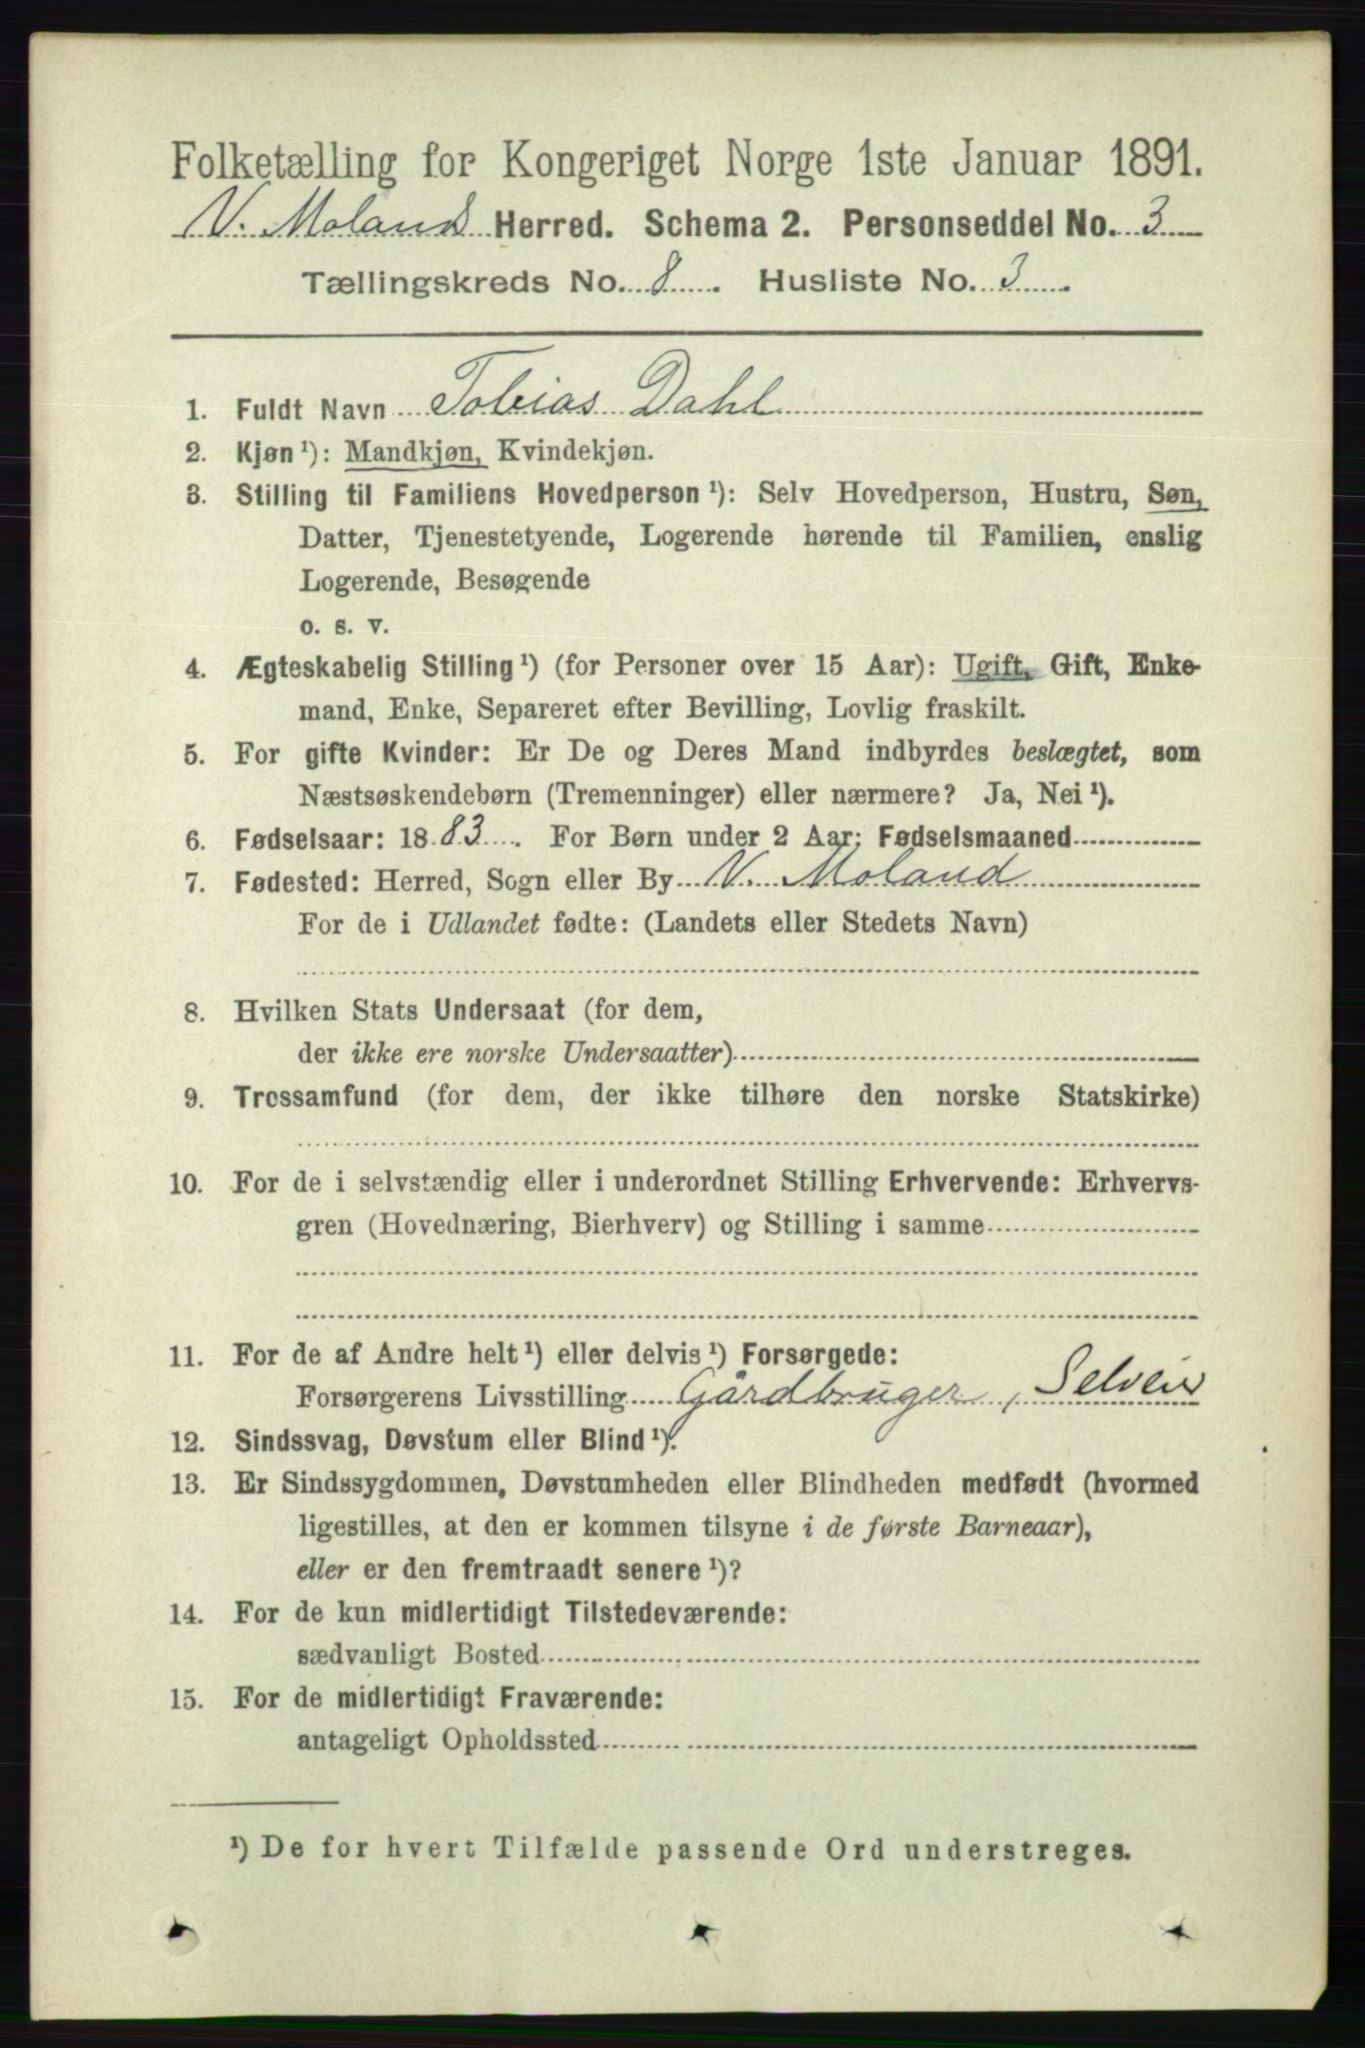 Folketælling for Kongeriget Norge 1ste Januar 1891.
V. Moland Herred. Schema 2. Personseddel No. 3
Tællingskreds No. 8. Husliste No. 3.
1. Fuldt Navn Tobias Dahl
2. Kjøn ¹): Mandkjøn, Kvindekjøn.
3. Stilling til Familiens Hovedperson ¹): Selv Hovedperson, Hustru, Søn,
Datter, Tjenestetyende, Logerende hørende til Familien, enslig
Logerende, Besøgende
o. s. v.
4. Ægteskabelig Stilling ¹) (for Personer over 15 Aar): Ugift, Gift, Enke-
mand, Enke, Separeret efter Bevilling, Lovlig fraskilt.
5. For gifte Kvinder: Er De og Deres Mand indbyrdes beslægtet, som
Næstsøskendebørn (Tremenninger) eller nærmere? Ja, Nei ¹).
6. Fødselsaar: 1883. For Børn under 2 Aar: Fødselsmaaned
7. Fødested: Herred, Sogn eller By V. Moland
For de i Udlandet fødte: (Landets eller Stedets Navn)
8. Hvilken Stats Undersaat (for dem,
der ikke ere norske Undersaatter)
9. Trossamfund (for dem, der ikke tilhøre den norske Statskirke)
10. For de i selvstændig eller i underordnet Stilling Erhvervende: Erhvervs-
gren (Hovednæring, Bierhverv) og Stilling i samme
11. For de af Andre helt ¹) eller delvis ¹) Forsørgede:
Forsørgerens Livsstilling Gårdbruger, Selveier
12. Sindssvag, Døvstum eller Blind ¹).
13. Er Sindssygdommen, Døvstumheden eller Blindheden medfødt (hvormed
ligestilles, at den er kommen tilsyne i de første Barneaar),
eller er den fremtraadt senere ¹)?
14. For de kun midlertidigt Tilstedeværende:
sædvanligt Bosted
15. For de midlertidigt Fraværende:
antageligt Opholdssted
¹) De for hvert Tilfælde passende Ord understreges.